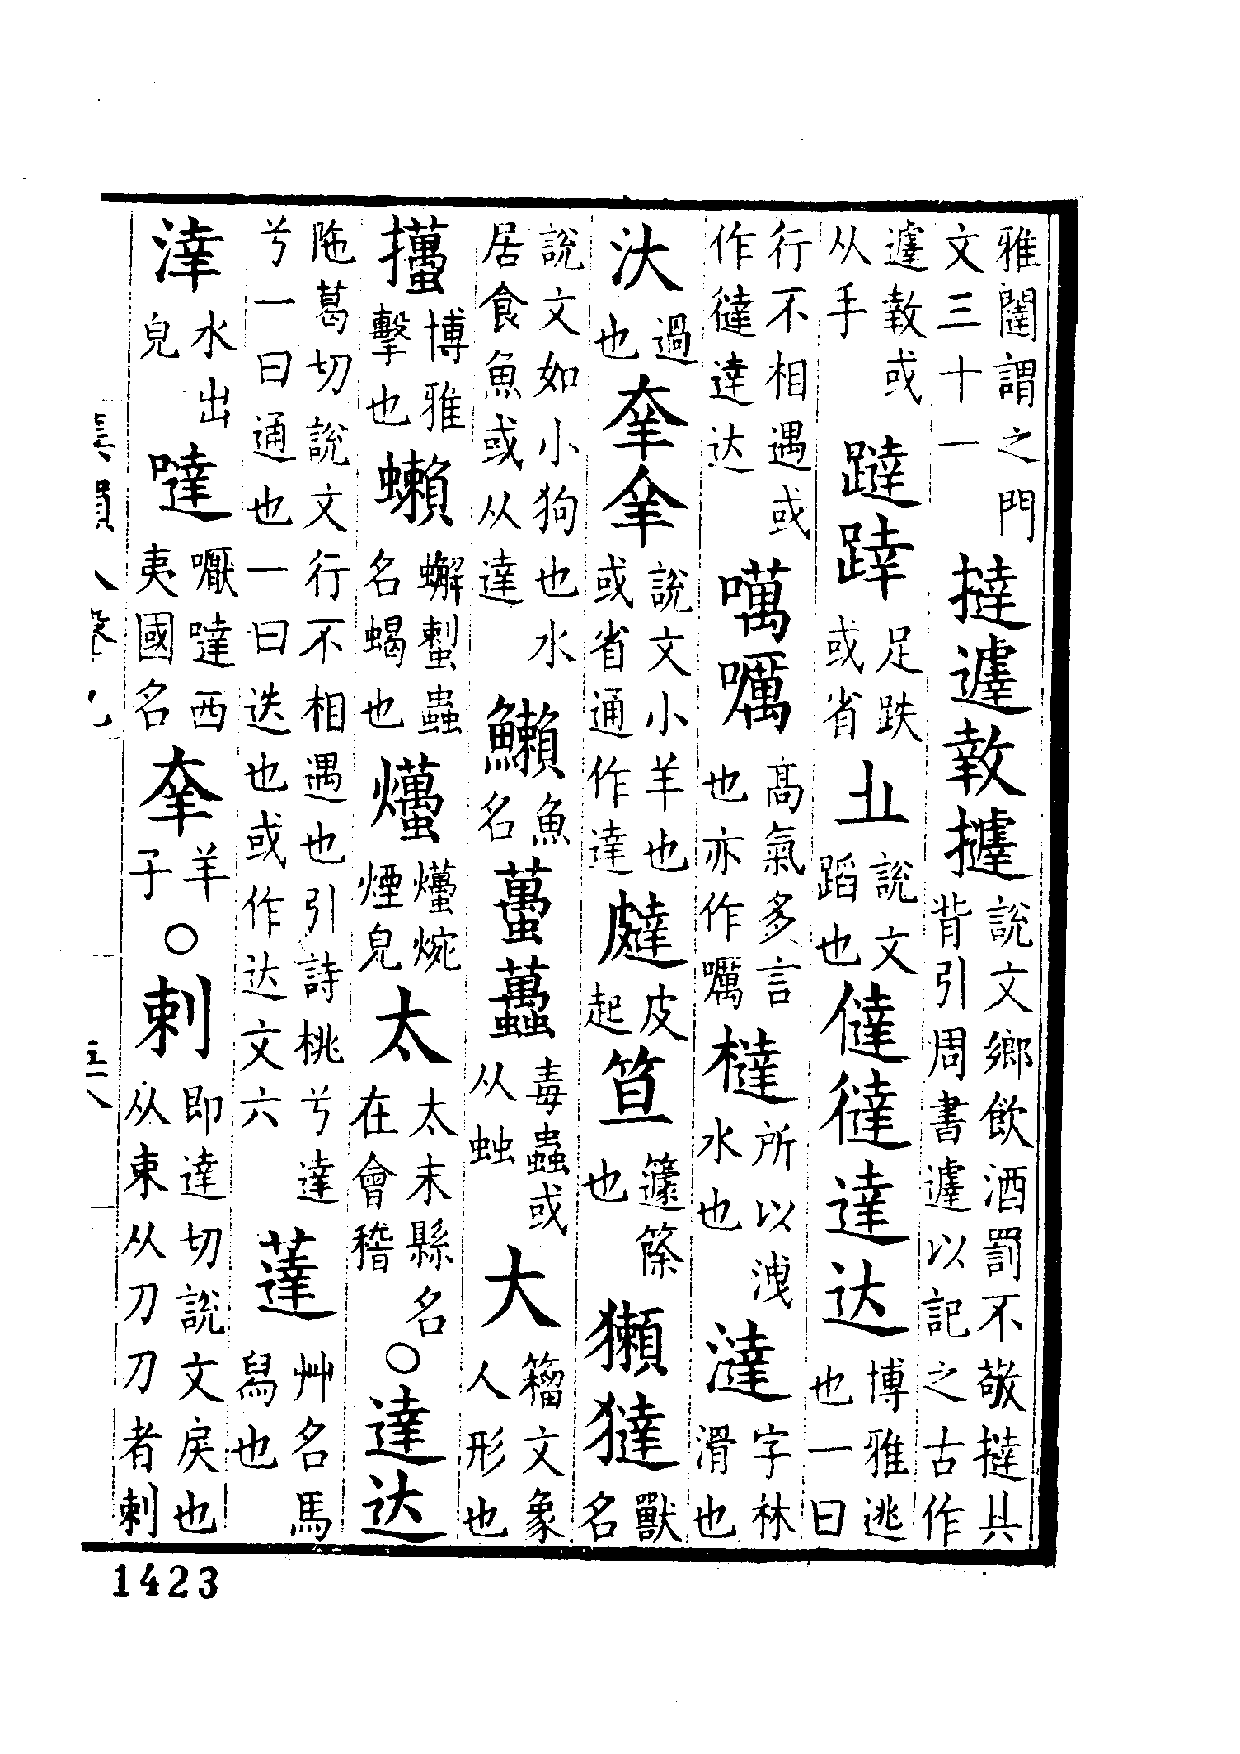 雅闥謂之門文三十一撻𨔶𢾡㒓說文鄉飲酒罰不敬撻其背引周書𨔶以記之古作
𨔶𢾡或从手躂跣足跌或省𣥂說文蹈也僅㒓達达博雅逃也一曰
行不相遇或作㣵達达噧囑高氣多言也亦作囑橽所以洩水也澾字林滑也
汏過也羍𦍒說文小羊也或省通作達𤿞皮起笪籧篨也獺㺚獸名
說文如小狗也水居食魚或从達鱲魚名蠆䘍毒蟲或从䖵大籀文象人形也
攭博雅擊也蠏蠏蜇蟲名蝎也爡爡焥煙皃太太末縣名在會稽○達达
陁葛切說文行不相遇也引詩挑兮達兮一曰通也一曰迭也或作达文六薘艸名馬舄也
汏水出皃噠嚈噠西夷國名羍羊子○剌即達切說文戾也从束从刀刀者剌
集韻入聲九
五八
1423